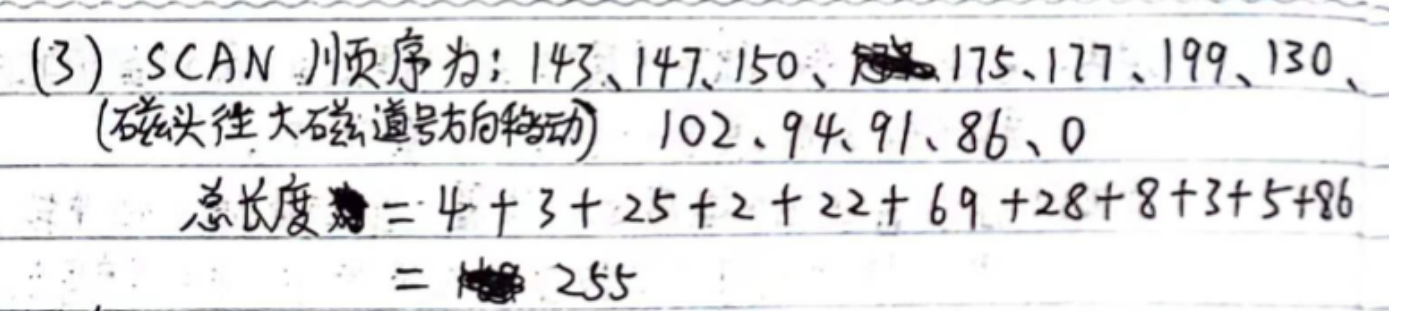 (3) SCAN 顺序为: 143、147、150、175、177、199、130、
(磁头往大磁道号方向移动) 102、94、91、86、0
总长度 = 4 + 3 + 25 + 2 + 22 + 69 + 28 + 8 + 3 + 5 + 86
= 255